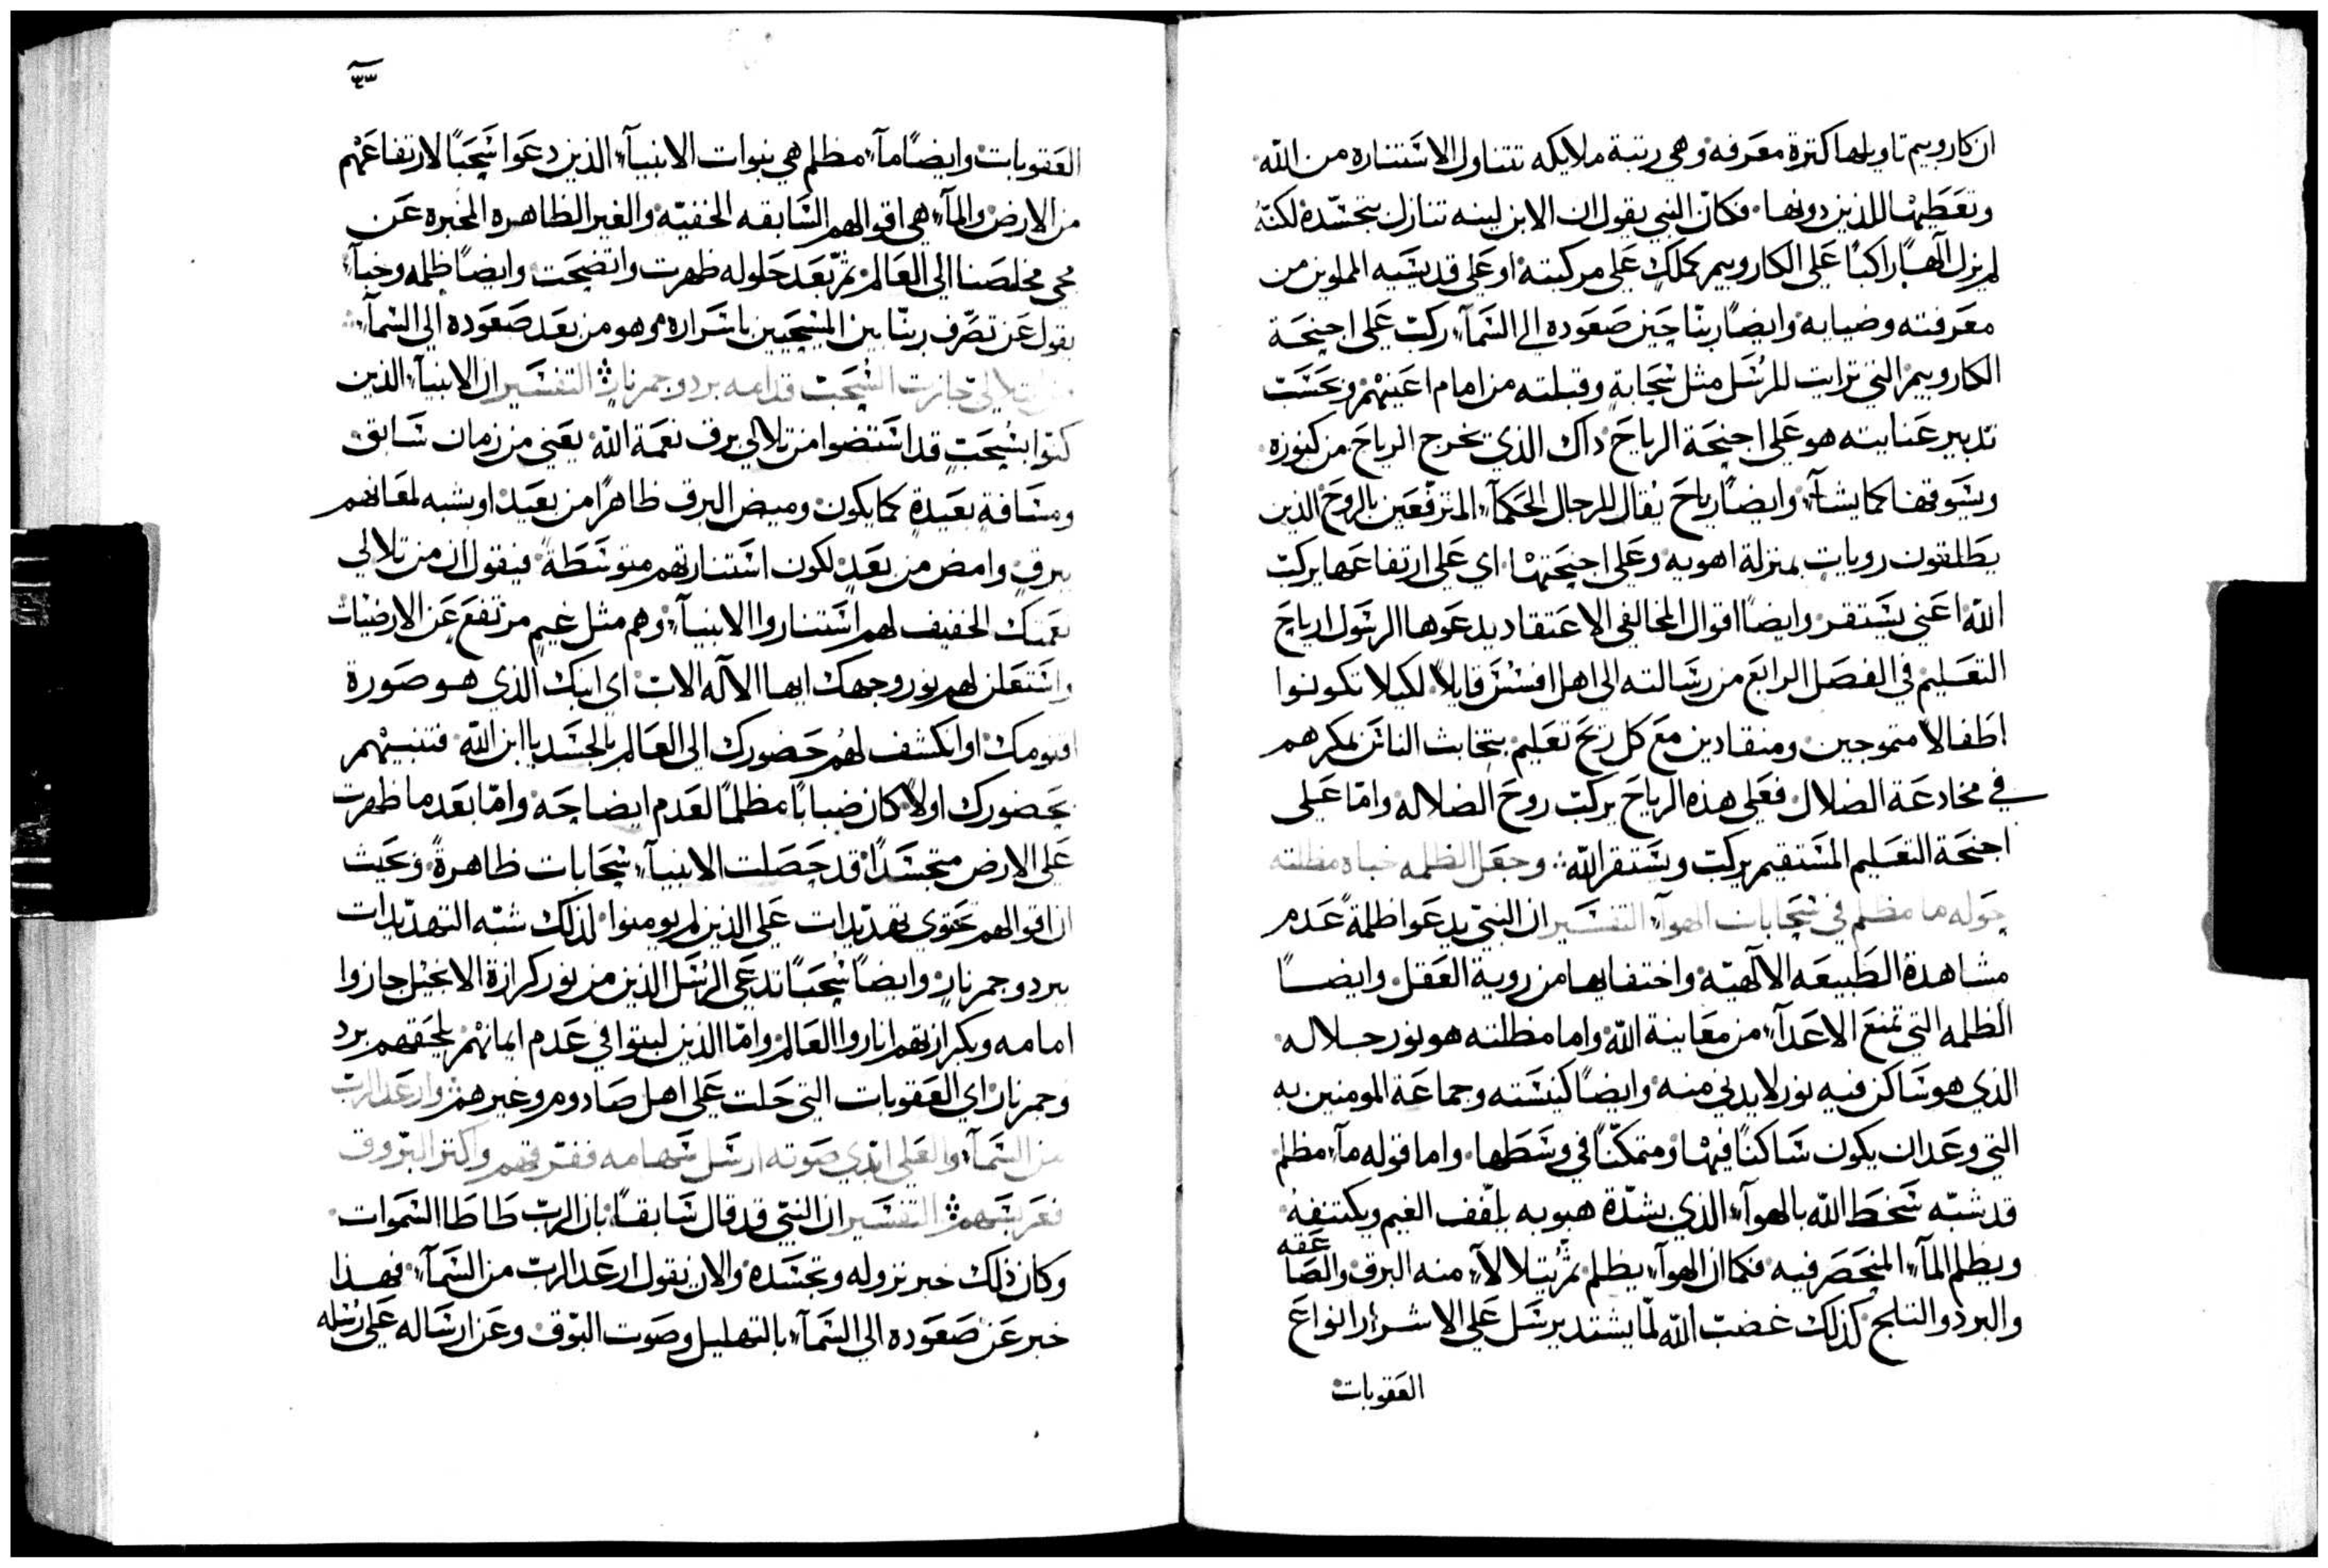 ان كاروبيم تاويلها كثرة معرفه وهي رتبة ملايكه تتناول الاستناره من الله
وتعطيها للذين دونها فكان النبي يقول ان الابن لينه تنازل بتجسده لكنه
لم يزل آلهًا راكبًا على الكاروبيم كملك على مركبته او على قديسيه المملوين من
معرفته وضيايه وايضًا ربنا حين صعوده الى السمآء ركب على اجنحة
الكاروبيم التي ترايت للرسل مثل سحابة وقبلته من امام اعينهم وبحسب
تدبير عنايته هو على اجنحة الرياح ذاك الذي تخرج الرياح من كنوزه
ويسوقها كما يشآء وايضًا رياح يقال للرجال الحكمآء المترفعين بالروح الذين
يطلقون رويات بمنزلة اهويه وعلى اجنحتها اي على ارتفاعها يركب
الله اعني يستقر وايضًا اقوال المخالفي الاعتقاد يدعوها الرسول ارياح
التعليم في الفصل الرابع من رسالته الى اهل افسس قايلاً لكيلا تكونوا
اطفالا متموجين ومنقادين مع كل ريح تعليم بتخابث الناس بمكرهم
في مخادعة الضلال فعلى هذه الرياح يركب روح الضلاله واما على
اجنحة التعليم المستقيم يركب ويستقر الله وجعل الظلمه خباه مظلته
حوله ما مظلم في سحابات الهوآء التفسير ان النبي يدعوا ظلمةً عدم
مشاهدة الطبيعه الالهيه واختفايها من روية العقل وايضًا
الظلمه التي تمنع الاعدآء من معاينة الله واما مظلته هو نور جلاله
الذي هو ساكن فيه نور لا يدنى منه وايضًا كنيسته وجماعة المومنين به
التي وعد ان يكون ساكنًا فيها ومتمكنًا في وسطها واما قوله مآء مظلم
قد شبه سخط الله بالهوآء الذي بشدة هبوبه يلفف الغيم ويكتنفه
ويظلم المآء المنحصر فيه فكما ان الهوآء يظلم ثم يتلالآء منه البرق والصاعقه
والبرد والثلج كذلك غضب الله لما يشتد يرسل على الاشرار انواع
العقوبات
٤٣
العقوبات وايضًا مآء مظلم هي نبوات الانبيآء الذين دعوا سحبًا لارتفاعهم
من الارض والمآء هي اقوالهم السابقه الخفيه والغير الظاهره المخبره عن
مجي مخلصنا الى العالم ثم بعد حلوله ظهرت واتضحت وايضًا ظلمه وخبآء
يقول عن تصرف ربنا بين المسيحيين باسراره وهو من بعد صعوده الى السمآء
تلالي جازت السحب قدامه برد وجمر نار التفسير ان الانبيآء الذين
كنوا بسحب قد استضوا من تلالي برق نعمة الله يعني من زمان سابق
ومسافة بعيدة كما يكون وميض البرق ظاهرًا من بعيد او يشبه لمعانهم
ببرق وامض من بعد لكون استنارتهم متوسطة فيقول ان من تلالي
نعمتك الخفيف لهم استناروا الانبيآء وهم مثل غيم مرتفع عن الارضيات
واستعلن لهم نور وجهك ايها الآله الاب اي ابنك الذي هو صورة
اقنومك او انكشف لهم حضورك الى العالم بالجسد يا ابن الله فتنبيهم
بحضورك اولاً كان ضبابًا مظلمًا لعدم ايضاحه واما بعد ما ظهرت
على الارض متجسدًا قد حصلت الانبيآء سحابات ظاهرةً وحيث
ان اقوالهم تحتوى تهديدات على الذين لم يومنوا لذلك شبه التهديدات
ببرد وجمر نار وايضًا سحبًا تدعى الرسل الذين من نور كرازة الانجيل جازوا
امامه وبكرازتهم اناروا العالم واما الذين لبثوا في عدم ايمانهم يلحقهم برد
وجمر نار اي العقوبات التي حلت على اهل صادوم وغيرهم وارعد الرب
من السمآء والعلي ابدى صوته ارسل سهامه ففرقهم واكثر البروق
التفسير ان النبي قد قال سابقًا بان الرب طاطا السموات
وكان ذلك خبر نزوله وتجسده والان يقول ارعد الرب من السمآء فهذا
خبر عن صعوده الى السمآء بالتهليل وصوت البوق وعن ارساله على رسله